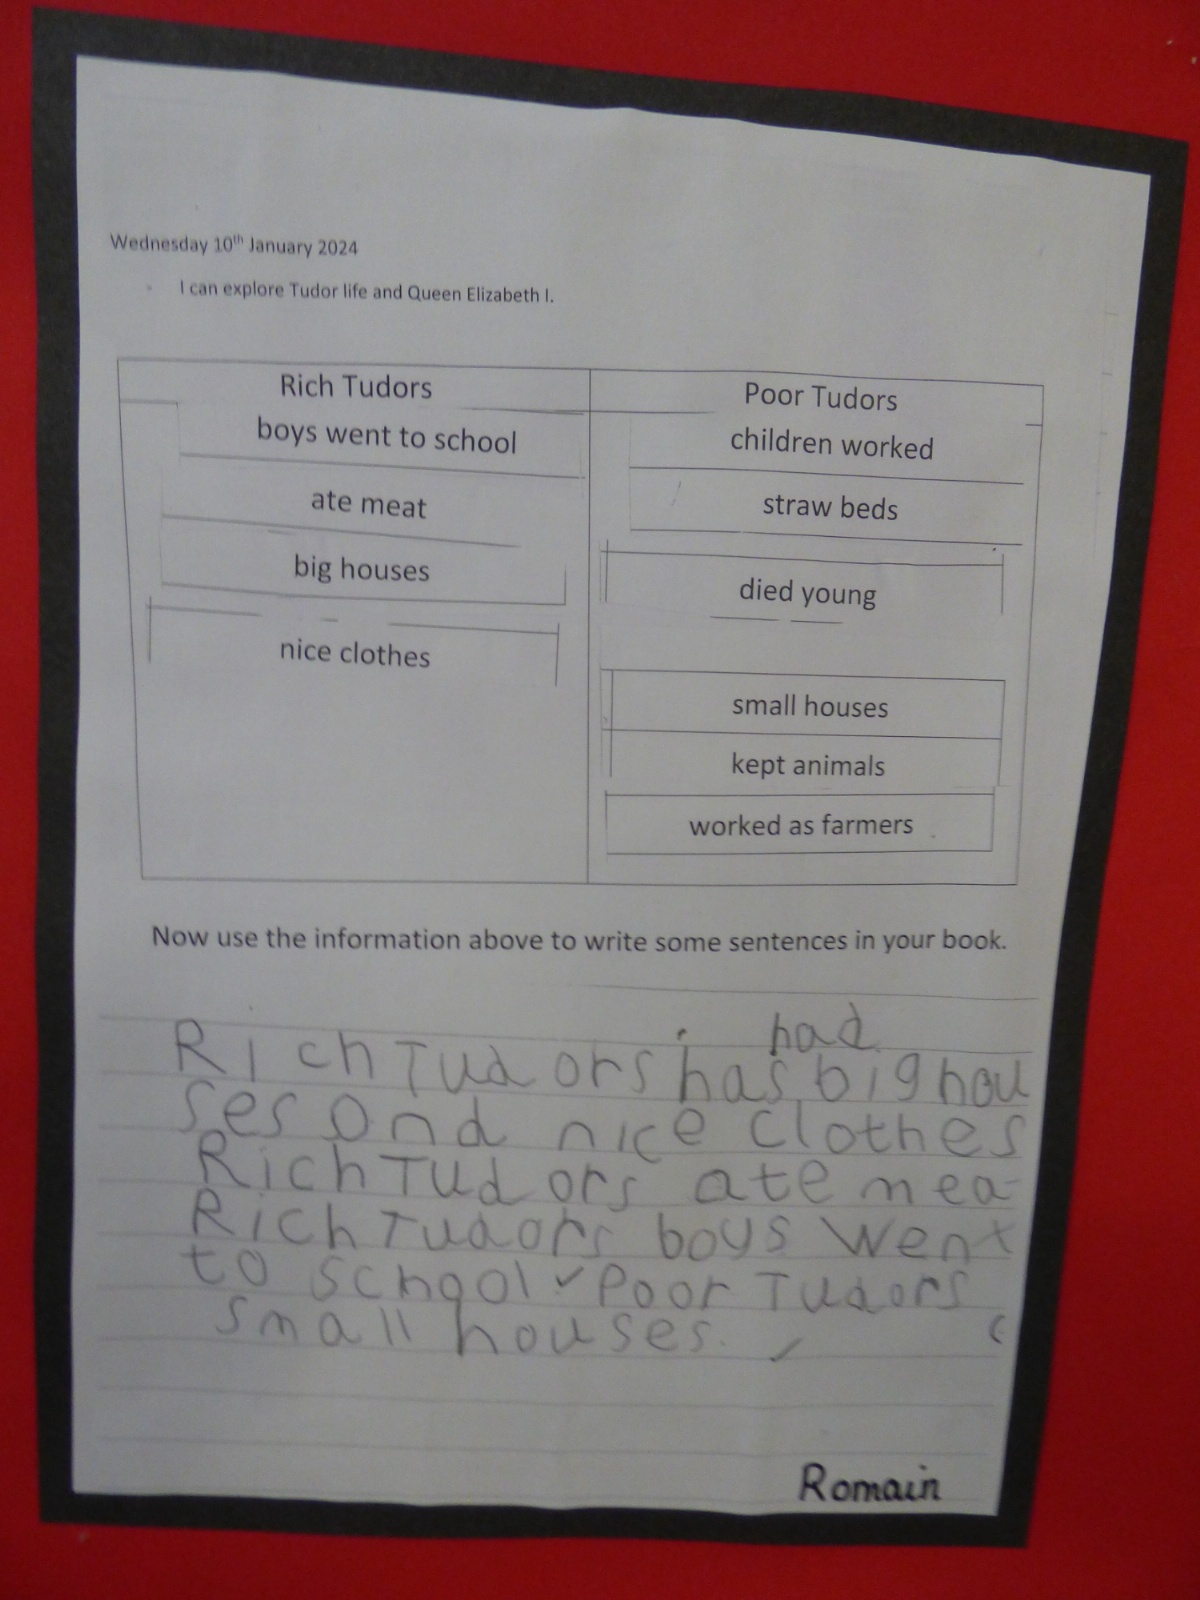 Wednesday 10th January 2024
I can explore Tudor life and Queen Elizabeth I.
Rich Tudors
boys went to school
ate meat
big houses
nice clothes
Poor Tudors
children worked
straw beds
died young
small houses
kept animals
worked as farmers
Now use the information above to write some sentences in your book.
had
Rich Tudors has big hou
ses and nice clothes
Rich Tudors ate mea
Rich Tudors boys went
to school Poor Tudors
small houses.
Romain